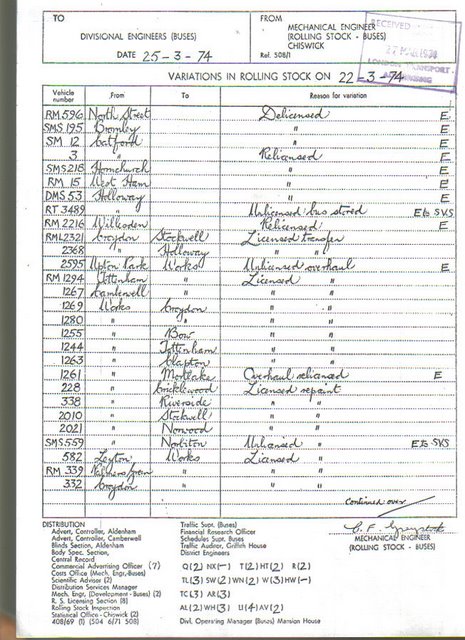 TO
DIVISIONAL ENGINEERS (BUSES)
DATE 25-3-74
FROM
MECHANICAL ENGINEER
(ROLLING STOCK - BUSES)
CHISWICK
Ref. 508/1
RECEIVED
LONDON TRANSPORT
VARIATIONS IN ROLLING STOCK ON 22-3-74
Vehicle number From To Reason for variation
RM 596 North Street Delicensed E
SMS 195 Bromley " E
SM 12 Catford " E
3 " Relicensed E
SMS 218 Hornchurch " E
RM 15 West Ham " E
DMS 53 Holloway " E
RT 3489 " Unlicensed bus stored E to SVS
RM 2216 Willesden Relicensed E
RML 2321 Croydon Stockwell Licensed transfer
2368 " Holloway " "
2595 Upton Park Works Unlicensed overhaul E
RM 1294 Tottenham " Licensed "
1267 Camberwell " " "
1269 Works Croydon " "
1280 " " " "
1255 " Bow " "
1244 " Tottenham " "
1263 " Clapton " "
1261 " Mortlake Overhaul relicensed E
228 " Cricklewood Licensed repaint
338 " Riverside " "
2010 " Stockwell " "
2021 " Norwood " "
SMS 559 " Norbiton Unlicensed " E to SVS
582 Leyton Works Licensed "
RM 339 " " "
332 Croydon " " "
Continued over
MECHANICAL ENGINEER
(ROLLING STOCK - BUSES)
DISTRIBUTION
Advert, Controller, Aldenham
Advert, Controller, Camberwell
Blinds Section, Aldenham
Body Spec, Section,
Central Record
Commercial Advertising Officer (7)
Costs Office (Mech. Engr-Buses)
Scientific Advisor (2)
Distribution Services Manager
Mech. Engr, (Development - Buses) (2)
R. S. Licensing Section (8)
Rolling Stock Inspection
Statistical Office - Chiswick (2)
408/69 (1) (504 6/71 508)
Traffic Supt. (Buses)
Financial Research Officer
Schedules Supt. Buses
Traffic Auditor, Griffith House
District Engineers
Q(2) NX(-) T(2) HT(2) R(2)
TL(3) SW(2) WN(2) W(3) HW(-)
TC(3) AR(3)
AL(2) WH(3) U(4) AV(2)
Divl. Operating Manager (Buses) Mansion House